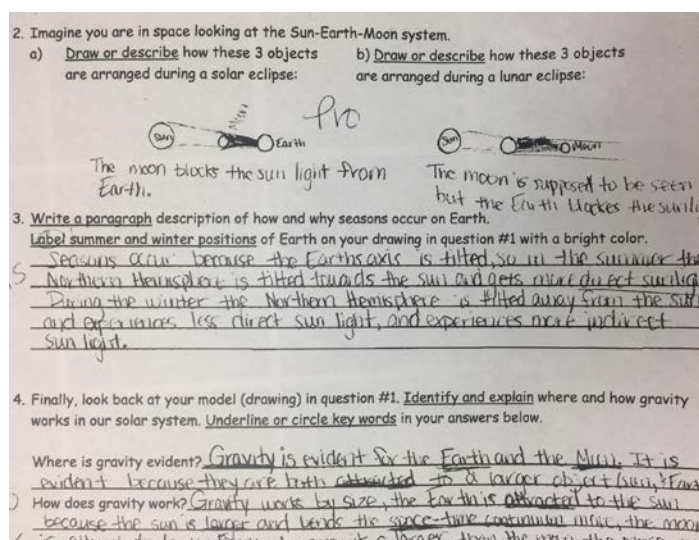 2. Imagine you are in space looking at the Sun-Earth-Moon system.
a) Draw or describe how these 3 objects are arranged during a solar eclipse:
b) Draw or describe how these 3 objects are arranged during a lunar eclipse:
Pro
Sun Moon Earth
Sun Moon
The moon blocks the sun light from
Earth.
The moon is supposed to be seen
but the Earth blockes the sunli
3. Write a paragraph description of how and why seasons occur on Earth.
Label summer and winter positions of Earth on your drawing in question #1 with a bright color.
Seasons occur because the Earths axis is tilted, so in the summer th
Northern Hemisphere is tilted towards the sun and gets more direct sunlig
During the winter the Northern Hemisphere is tilted away from the sun
and experiences less direct sun light, and experiences more indirect
sun light.
4. Finally, look back at your model (drawing) in question #1. Identify and explain where and how gravity
works in our solar system. Underline or circle key words in your answers below.
Where is gravity evident? Gravity is evident for the Earth and the Moon. It is
evident because they are both attracted to a larger object (sun,
How does gravity work? Gravity works by size, the Earth is attracted to the sun
because the sun is larger and bends the space-time continuum more, the moon